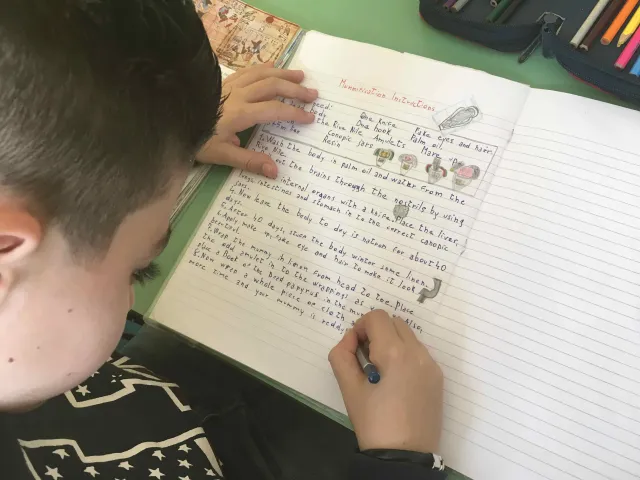 Mummification Instructions
need: One knife Fake eyes and hair
dead body One hook Palm oil
the River Nile Amulets Mare
Canopic jars
Resin
1. Wash the body in palm oil and water from the
River Nile
out the brains through the nostrils by using
internal organs with a knife. Place the liver,
lungs, intestines and stomach in to the correct canopic
jars.
4. Now leave the body to dry is natron for about 40
days.
5. After 40 days, stuff the body winter some linen.
6. Apply make up, fake eye and hair to make it look
beautiful.
7. Wrap the mummy in linen from head to the. Place
the odd amulet in to the wrappings as Also,
place a Book of the Dead papyrus in the
8. Now wrap a whole piece of cloth
more time and your mummy is reddy